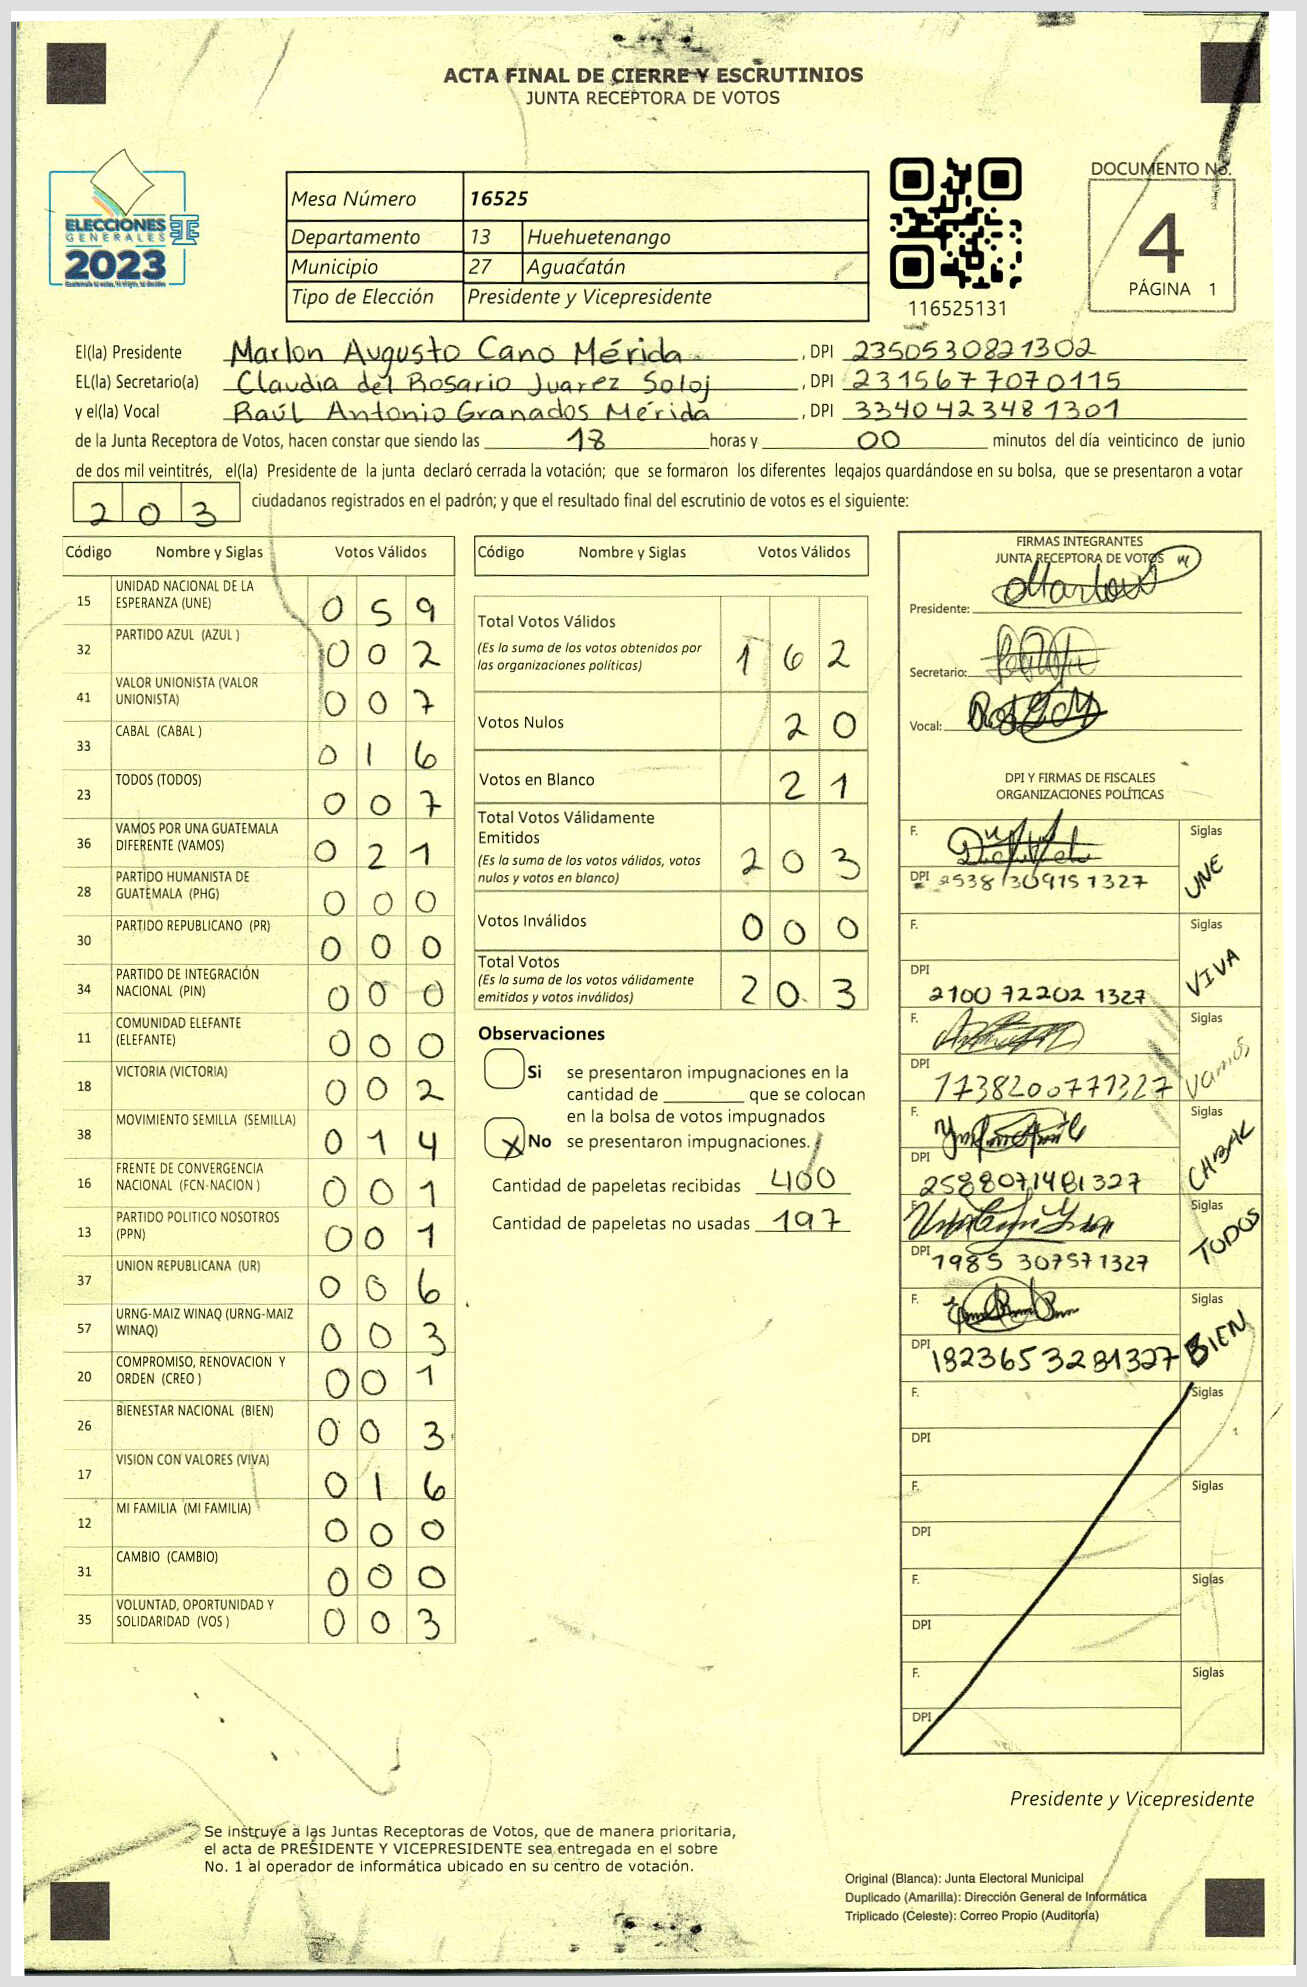 ACTA FINAL DE CIERRE Y ESCRUTINIOS
JUNTA RECEPTORA DE VOTOS
ELECCIONES
GENERALES
2023
Mesa Número 16525
Departamento 13 Huehuetenango
Municipio 27 Aguacatán
Tipo de Elección Presidente y Vicepresidente
116525131
DOCUMENTO No.
4
PÁGINA 1
El(la) Presidente Marlon Augusto Cano Mérida, DPI 2350530821302
EL(la) Secretario(a) Claudia del Rosario Juarez Soloj, DPI 2315677070115
y el(la) Vocal Raúl Antonio Granados Mérida, DPI 3340423481301
de la Junta Receptora de Votos, hacen constar que siendo las 18 horas y 00 minutos del día veinticinco de junio
de dos mil veintitrés, el(la) Presidente de la junta declaró cerrada la votación; que se formaron los diferentes legajos quardándose en su bolsa, que se presentaron a votar
203 ciudadanos registrados en el padrón; y que el resultado final del escrutinio de votos es el siguiente:
Código Nombre y Siglas Votos Válidos
15 UNIDAD NACIONAL DE LA
ESPERANZA (UNE) 059
32 PARTIDO AZUL (AZUL ) 002
41 VALOR UNIONISTA (VALOR
UNIONISTA) 007
33 CABAL (CABAL ) 016
23 TODOS (TODOS) 007
36 VAMOS POR UNA GUATEMALA
DIFERENTE (VAMOS) 021
28 PARTIDO HUMANISTA DE
GUATEMALA (PHG) 000
30 PARTIDO REPUBLICANO (PR) 000
34 PARTIDO DE INTEGRACIÓN
NACIONAL (PIN) 000
11 COMUNIDAD ELEFANTE
(ELEFANTE) 000
18 VICTORIA (VICTORIA) 002
38 MOVIMIENTO SEMILLA (SEMILLA) 014
16 FRENTE DE CONVERGENCIA
NACIONAL (FCN-NACION ) 001
13 PARTIDO POLITICO NOSOTROS
(PPN) 001
37 UNION REPUBLICANA (UR) 006
57 URNG-MAIZ WINAQ (URNG-MAIZ
WINAQ) 003
20 COMPROMISO, RENOVACION Y
ORDEN (CREO ) 001
26 BIENESTAR NACIONAL (BIEN) 003
17 VISION CON VALORES (VIVA) 016
12 MI FAMILIA (MI FAMILIA) 000
31 CAMBIO (CAMBIO) 000
35 VOLUNTAD, OPORTUNIDAD Y
SOLIDARIDAD (VOS ) 003
Código Nombre y Siglas Votos Válidos
Total Votos Válidos
(Es la suma de los votos obtenidos por
las organizaciones políticas) 162
Votos Nulos 20
Votos en Blanco 21
Total Votos Válidamente
Emitidos
(Es la suma de los votos válidos, votos
nulos y votos en blanco) 203
Votos Inválidos 000
Total Votos
(Es la suma de los votos válidamente
emitidos y votos inválidos) 203
Observaciones
Si se presentaron impugnaciones en la
cantidad de ________ que se colocan
en la bolsa de votos impugnados
X No se presentaron impugnaciones.
Cantidad de papeletas recibidas 400
Cantidad de papeletas no usadas 197
FIRMAS INTEGRANTES
JUNTA RECEPTORA DE VOTOS
Presidente:
Secretario:
Vocal:
DPI Y FIRMAS DE FISCALES
ORGANIZACIONES POLÍTICAS
F. Siglas
DPI 2538130915 1327 UNE
F. Siglas
DPI 2100 72202 1327 VIVA
F. Siglas
DPI 1738200771327 Vamos
F. Siglas
DPI 2588071481327 CABAL
F. Siglas
DPI 1985 30757 1327 TODOS
F. Siglas
DPI 1823653281327 BIEN
F. Siglas
DPI
F. Siglas
DPI
F. Siglas
DPI
F. Siglas
DPI
Presidente y Vicepresidente
Se instruye a las Juntas Receptoras de Votos, que de manera prioritaria,
el acta de PRESIDENTE Y VICEPRESIDENTE sea entregada en el sobre
No. 1 al operador de informática ubicado en su centro de votación.
Original (Blanca): Junta Electoral Municipal
Duplicado (Amarilla): Dirección General de Informática
Triplicado (Celeste): Correo Propio (Auditoría)